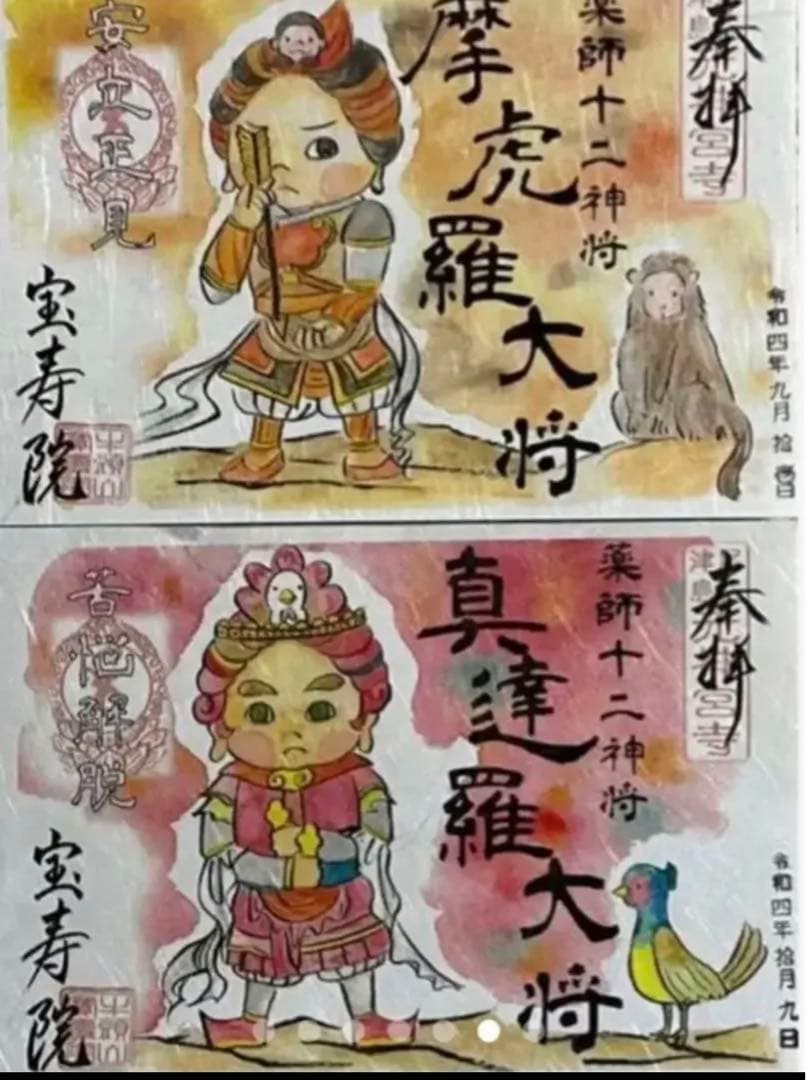 奉拝
薬師十二神将
摩虎羅大将
安立正見
宝寿院
令和四年九月拾
奉拝
薬師十二神将
真達羅大将
苦悩解脱
宝寿院
令和四年拾月九日